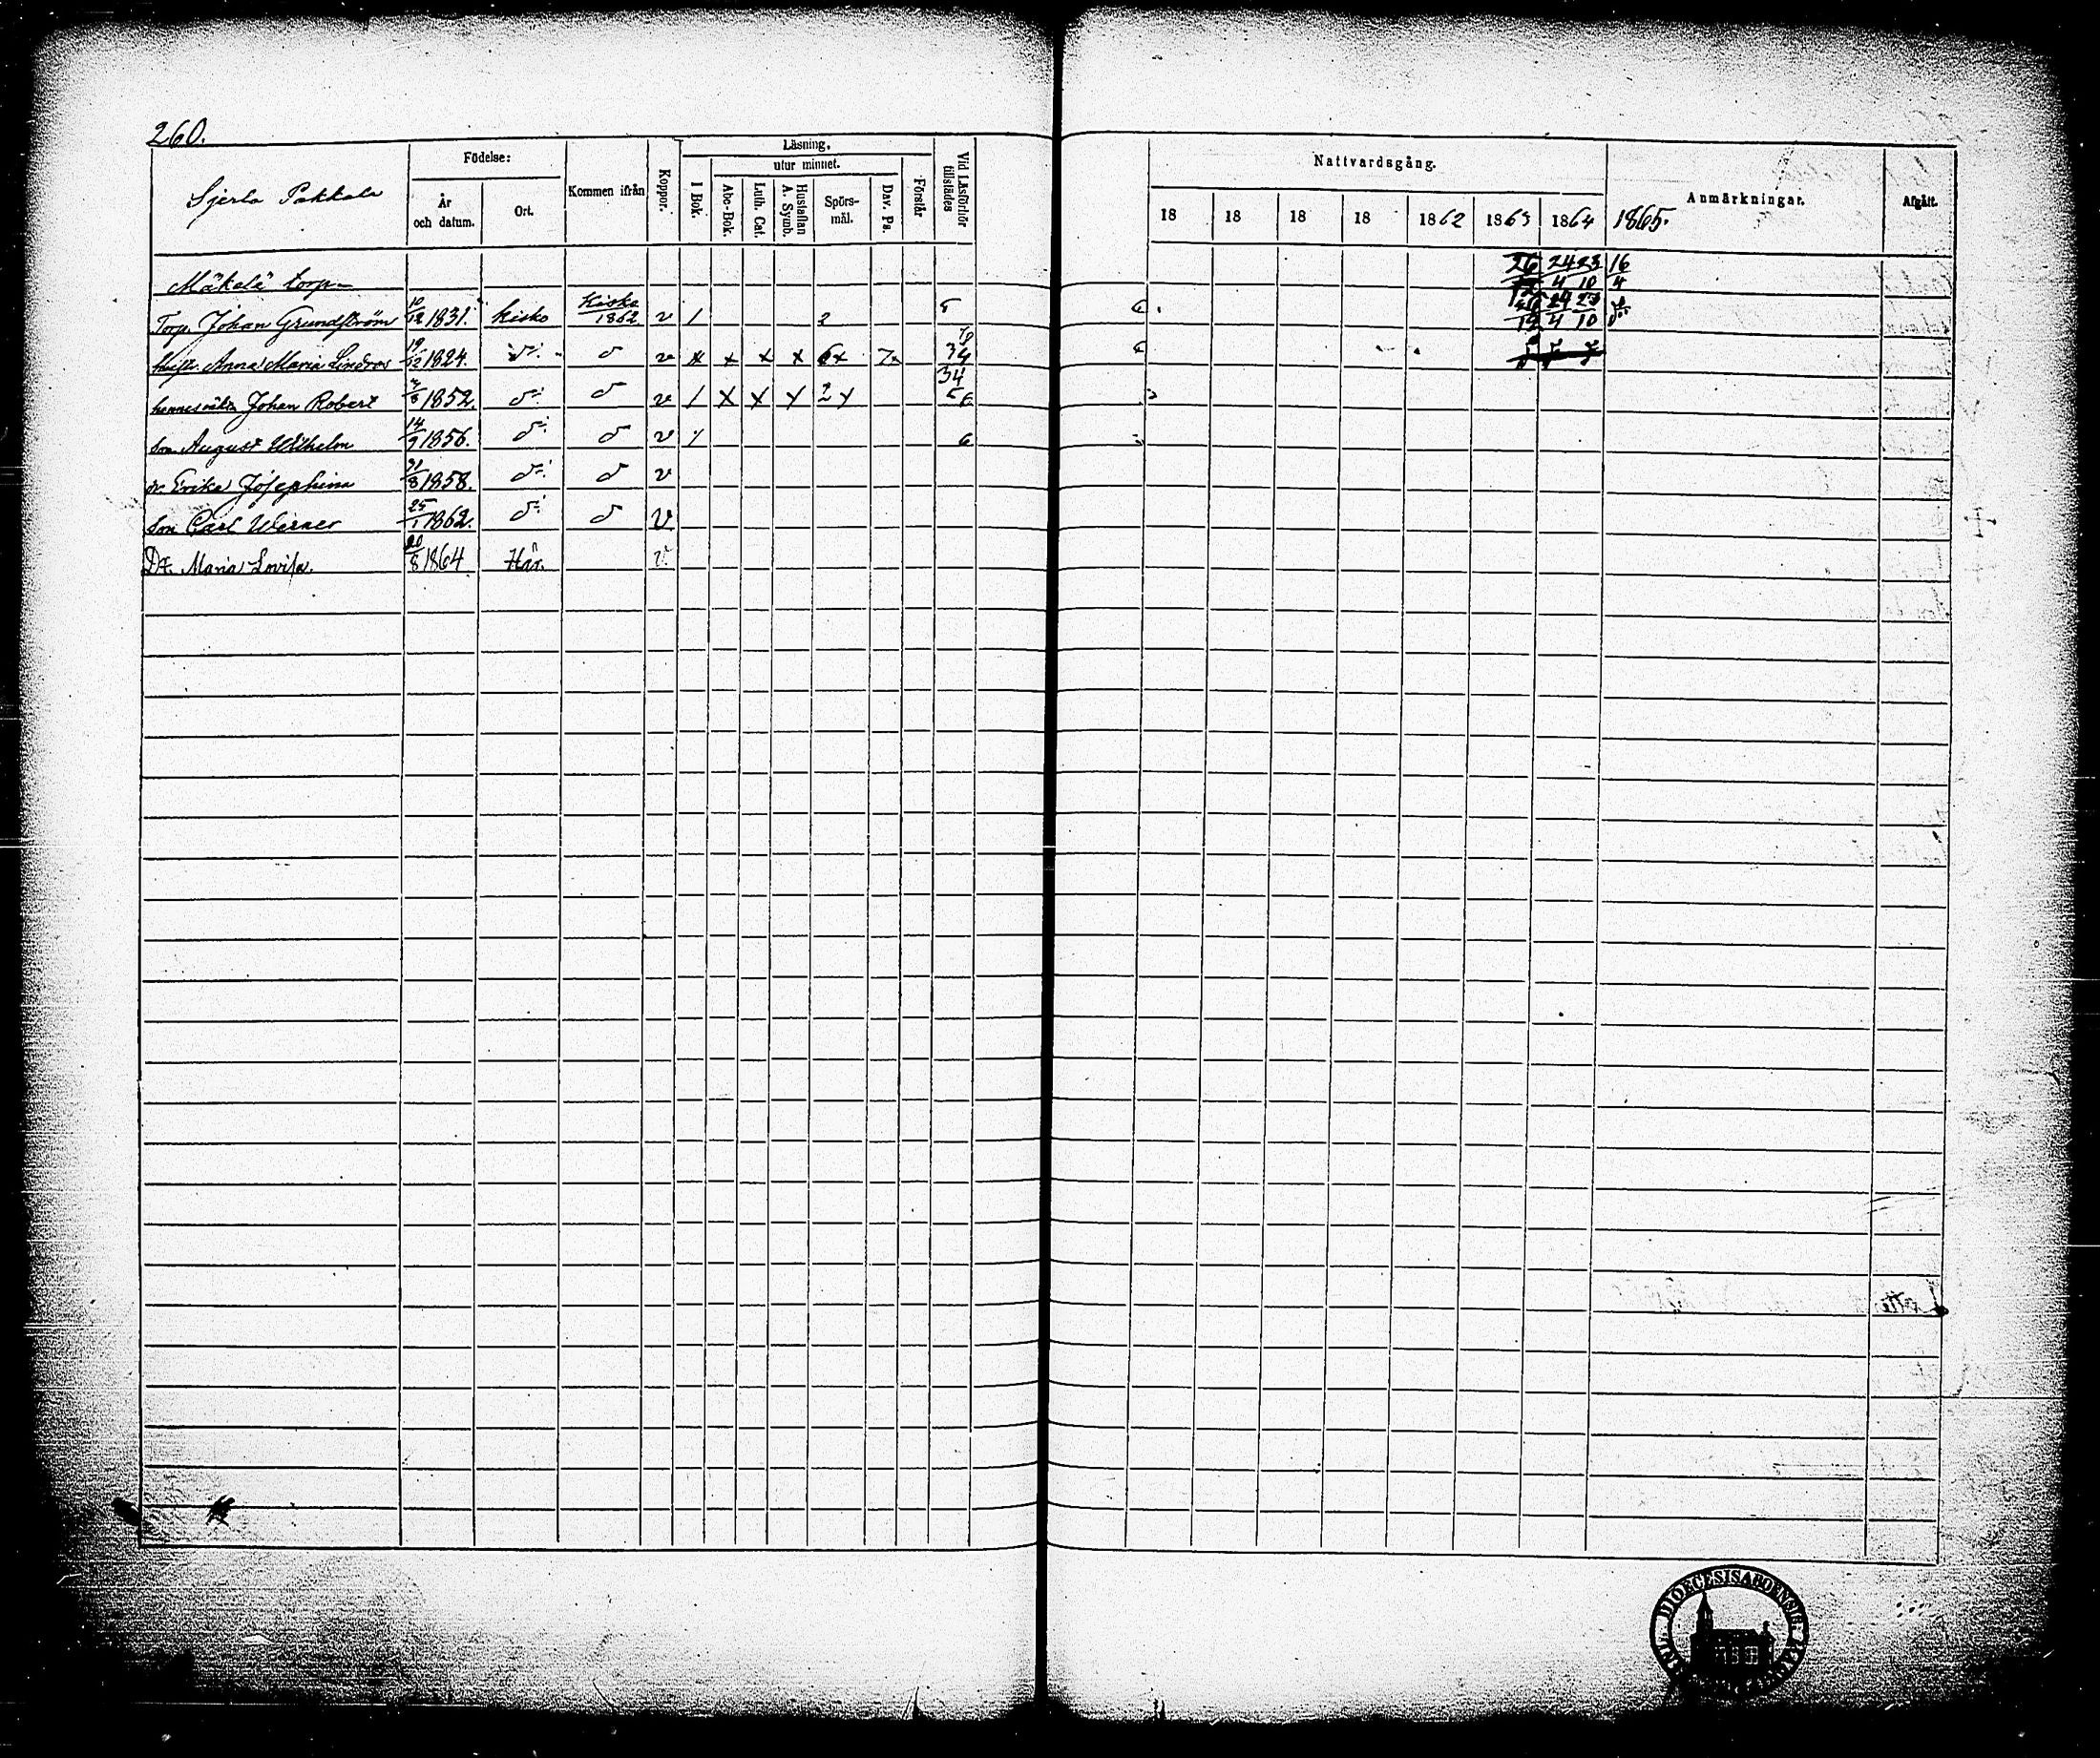 260.
Sjerlo Pakkala
Födelse:
År och datum.
Ort.
Kommen ifrån
Koppor.
Läsning,
I Bok.
utur minnet.
Abc-Bok.
Luth. Cat.
Hustaflan A. Symb.
Spörsmål.
Dav. Ps.
Förstår
Vid Läsförhör tillstädes
Nattvardsgång.
18 18 18 18 1862 1863 1864 1865.
Anmärkningar.
Afgått.
Mäkelä torp 24/4 23/10 16/4
Torp. Johan Grundström 10/12 1831. Kisko Kisko 1862 v 1 2 5 6
hustr. Anna Maria Lindros 19/12 1824. do do v x x x x 6x 7x 34 6
hennes oäkta Johan Robert 1852. do do v 1 x x x 2 x 34 56
son August Wilhelm 14/9 1856. do do v 6
dr. Erika Josephina 31/8 1858. do do v
son Carl Werner 25/1 1862. do do v
Dr. Maria Lovisa. 20/8 1864 Här. v.
DIOECESIS ABOENSIS